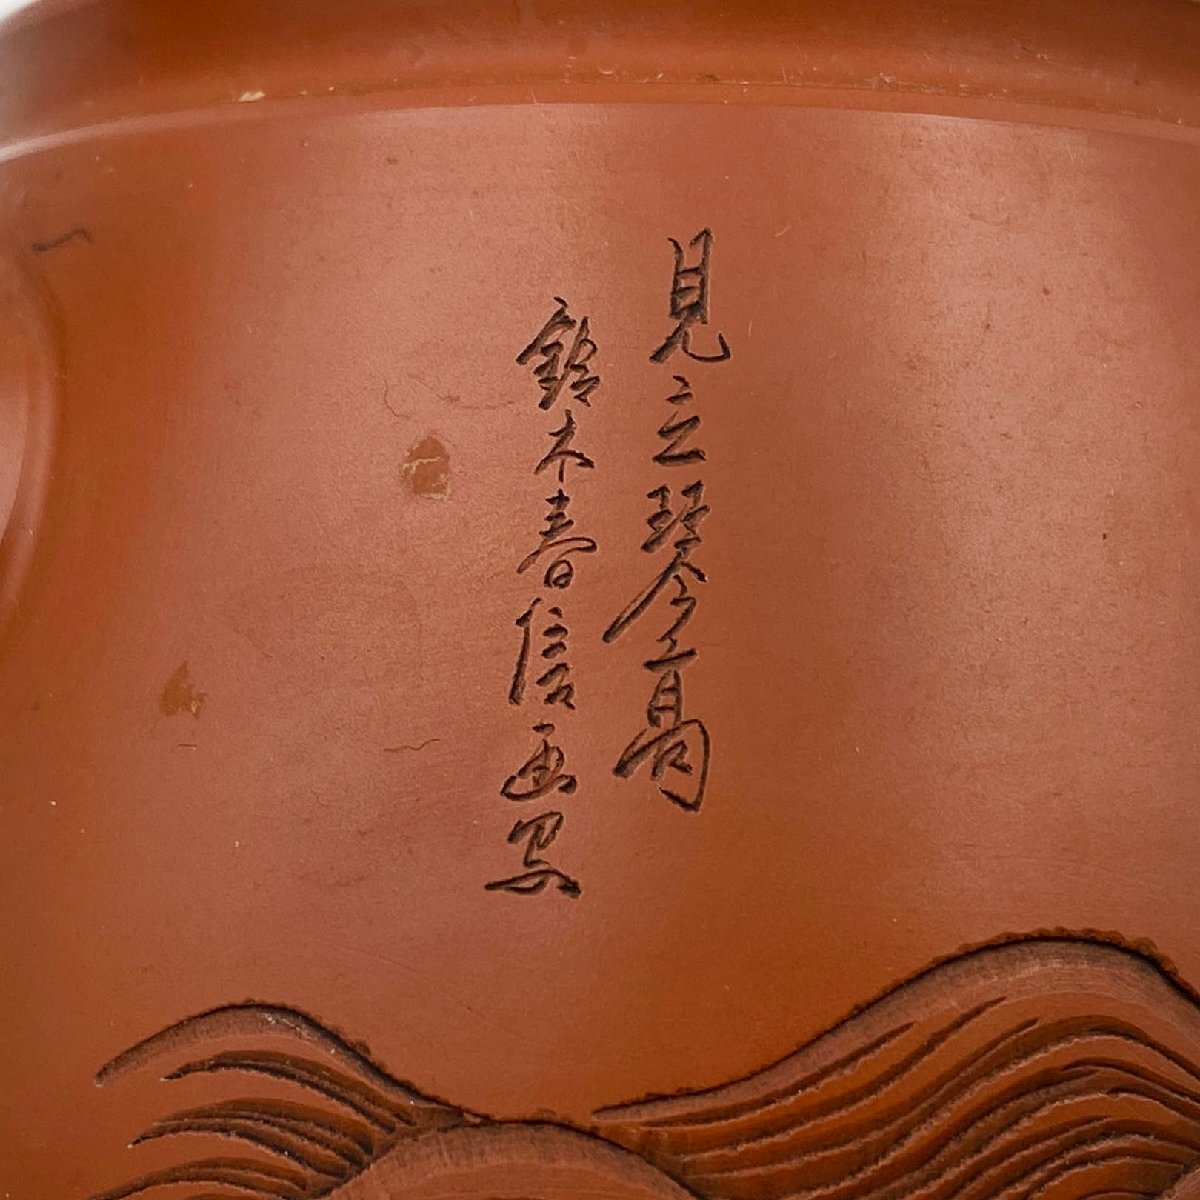 見立琴高
鈴木春信画写